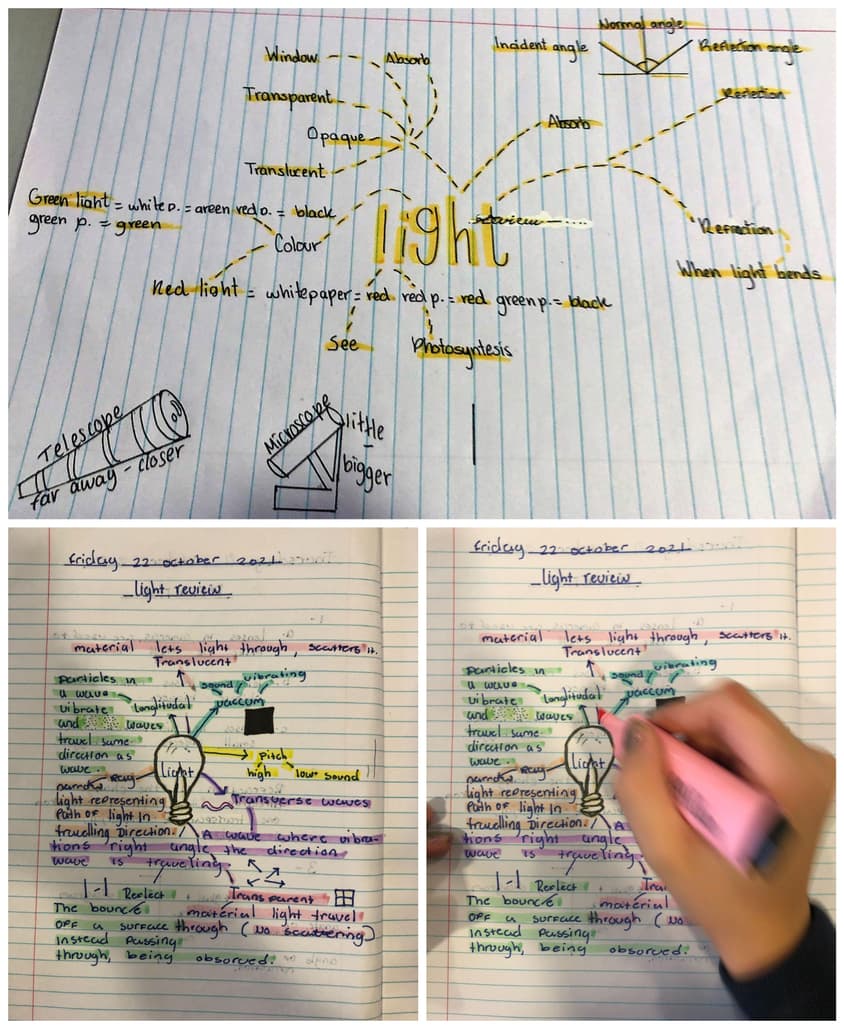 Normal angle
Incident angle
Reflection angle
Window
Absorb
Transparent
Reflection
Opaque
Absorb
Translucent
Green light = white p. = green red p. = black
green p. = green
light
Refraction
Colour
When light bends
Red light = white paper = red red p. = red green p. = black
See
Photosyntesis
Telescope
far away - closer
Microscope
little
-
bigger
Friday 22 october 2021
Light review
material lets light through, scatters it.
Translucent
particles in
a wave
vibrate
and
travel same
direction as
wave.
sound
vibrating
vaccum
Longlitudal
waves
Light
Pitch
high
low sound
narrow Ray
light representing
Path of light in
travelling Direction.
Transverse waves
A wave where vibra-
tions right angle the direction
wave is traveling.
Reflect
The bounce
off a surface
instead Passing
through, being obsorved.
Transparent
material light travel
through (no scattering)
Friday 22 october 2021
Light review
material lets light through, scatters it.
Translucent
Particles in
a wave
vibrate
and
travel same
direction as
wave.
sound
vibrating
vaccum
Longlitudal
waves
Light
narrow Ray
light representing
Path of light in
travelling Direction.
A
tions right angle
wave is traveling.
Reflect
The bounce
off a surface
instead Passing
through, being obsorved.
Tra
material
through (no